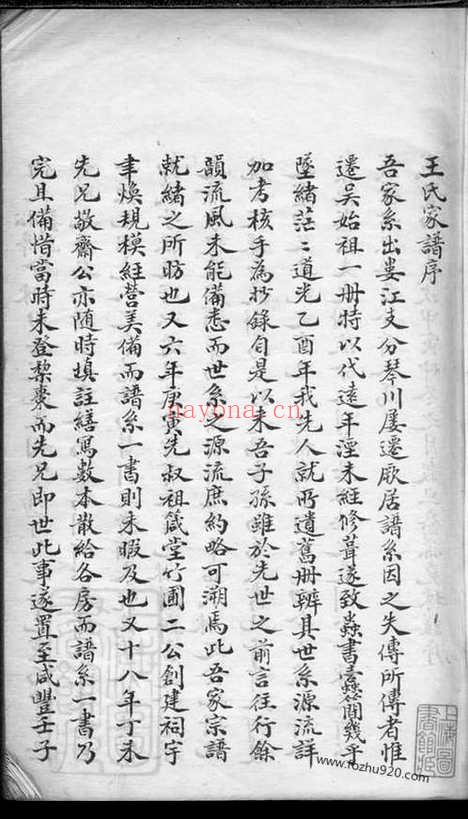 王氏家譜序
吾家系出婁江支分琴川屢遷厥居譜系因之失傳所傳者惟
遷吳始祖一冊特以代遠年湮未經修葺遂致蟲書蠹簡幾乎
墜緒茫〻道光乙酉年我先人就所遺舊冊辨其世系源流詳
加考核手為抄錄自是以來吾子孫雖於先世之前言往行餘
韻流風未能備悉而世系之源流庶約略可溯焉此吾家宗譜
就緒之所昉也又六年庚寅先叔祖箴堂竹圃二公創建祠宇
聿煥規模經營美備而譜系一書則未暇及也又十八年丁未
先兄敬齋公亦隨時填註繕寫數本散給各房而譜系一書乃
完且備惜當時未登梨棗而先兄即世此事遂置至咸豐壬子
上海圖書館藏
hayona.cn
www.fozhu920.com